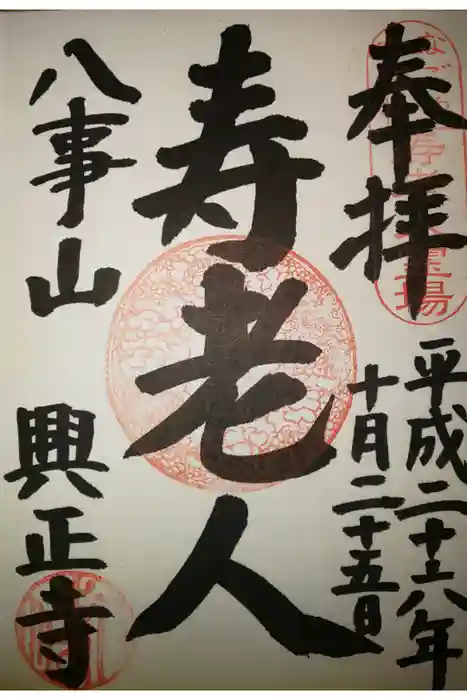 奉拝
平成二十六年
十月二十五日
寿老人
八事山
興正寺